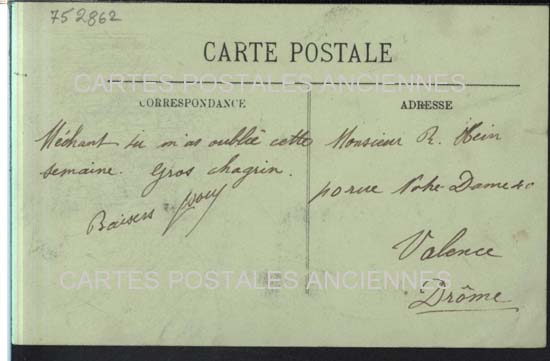 752862
CARTE POSTALE
CARTES POSTALES ANCIENNES
CORRESPONDANCE
Méchant tu m'as oublié cette
semaine. Gros chagrin.
Baisers
ADRESSE
Monsieur R. Hein
rue Notre-Dame
Valence
Drôme
CARTES POSTALES ANCIENNES